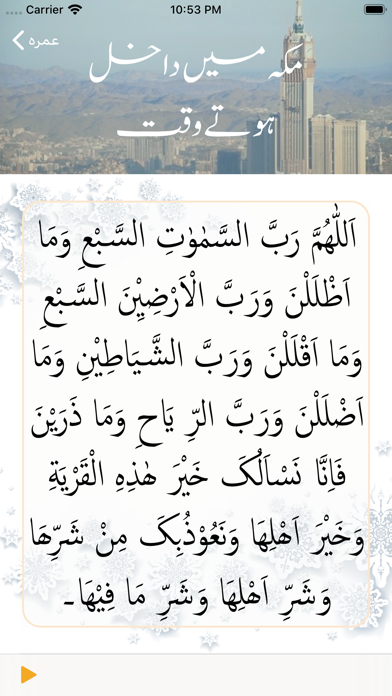 Carrier 10:53 PM
عمرہ
مکہ میں داخل
ہوتے وقت
اَللّٰهُمَّ رَبَّ السَّمٰوٰتِ السَّبْعِ وَمَا
اَظْلَلْنَ وَرَبَّ الْاَرْضِیْنَ السَّبْعِ
وَمَا اَقْلَلْنَ وَرَبَّ الشَّیَاطِیْنِ وَمَا
اَضْلَلْنَ وَرَبَّ الرِّ یَاحِ وَمَا ذَرَیْنَ
فَاِنَّا نَسْاَلُکَ خَیْرَ هٰذِهِ الْقَرْیَةِ
وَخَیْرَ اَهْلِهَا وَنَعُوْذُبِکَ مِنْ شَرِّهَا
وَشَرِّ اَهْلِهَا وَشَرِّ مَا فِیْهَا۔